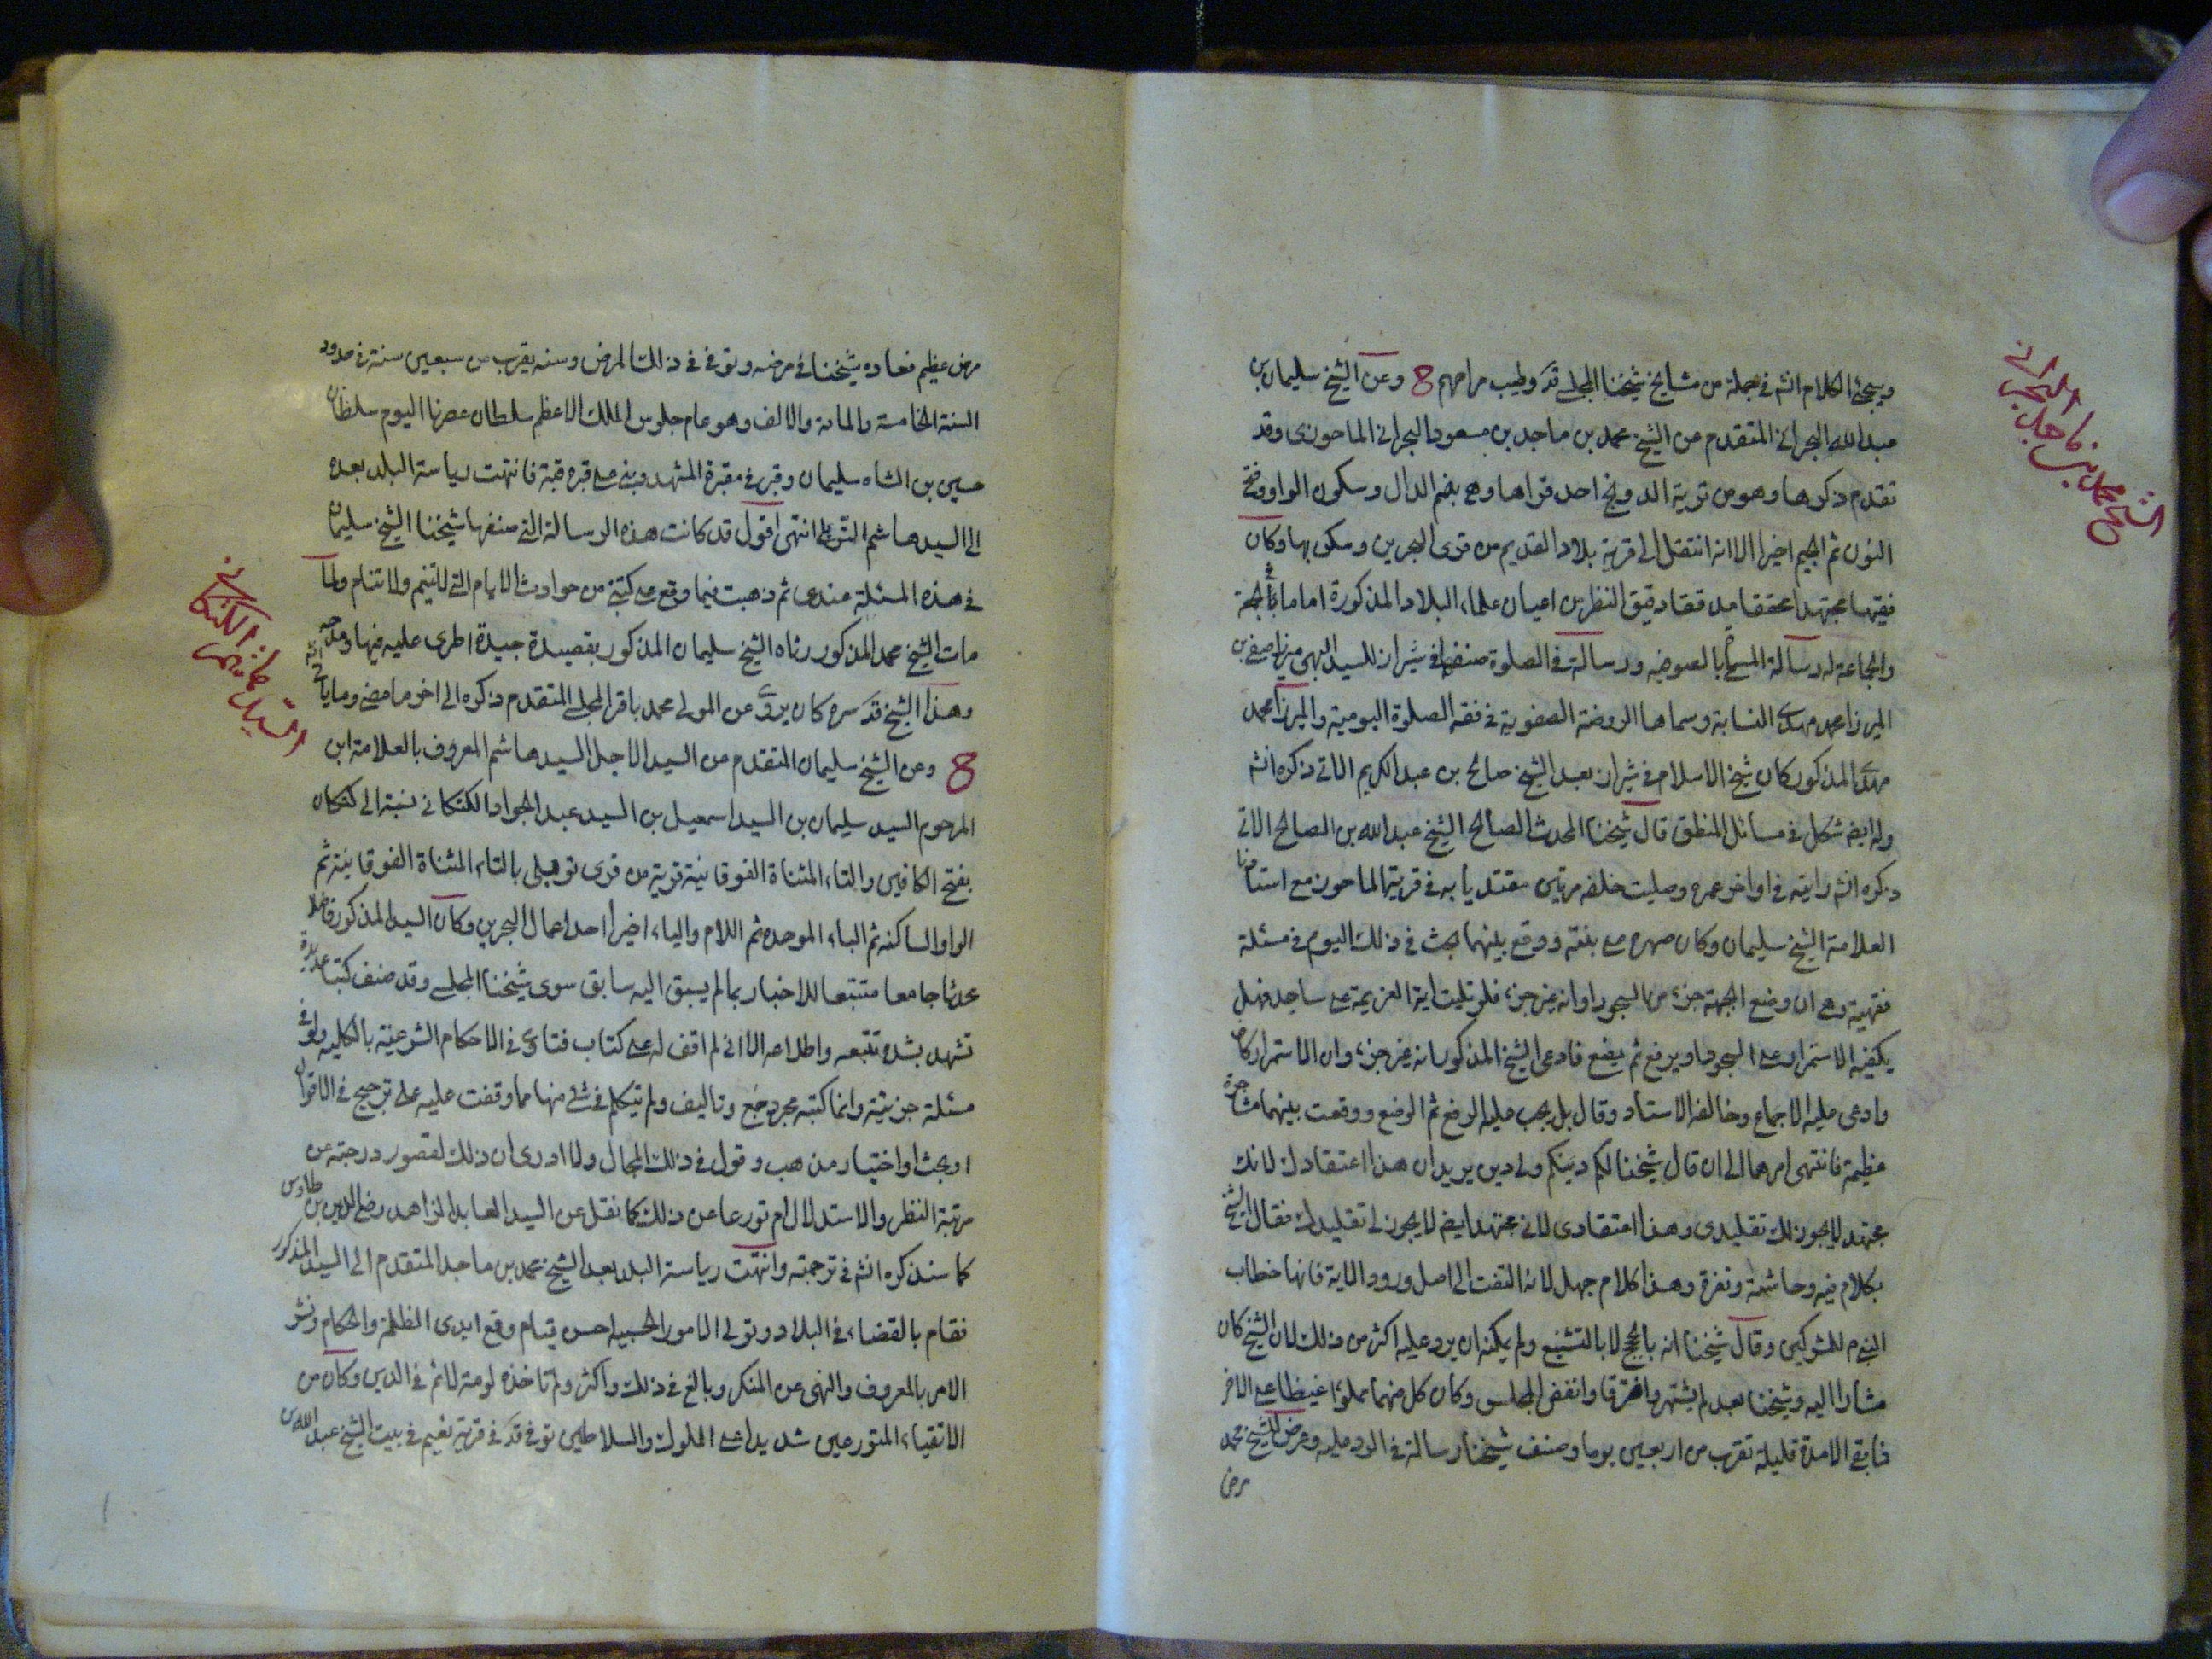 الشيخ محمد بن ماجد البحراني
ويجئ الكلام انشه في جملة من مشايخ شيخنا المجلسي قده وطيب مراحمهم ح وعن الشيخ سليمان بن
عبد الله البحراني المتقدم عن الشيخ محمد بن ماجد بن مسعود البحراني الماحوزى وقد
تقدم ذكرها وهو من قرية الدونج احد قراها وهى بضم الدال وسكون الواو وفتح
النون ثم الجيم اخيرا الا انه انتقل الى قرية بلاد القديم من قرى البحرين وسكن بها وكان
فقيها مجتهدا محققا مدققا دقيق النظر من اعيان علماء البلاد المذكورة اماما في الجمعة
والجماعة له رسالة المسماة بالصوفيه ورسالة في الصلوة صنفها في شيراز للسيد البهى ميرزا صفى بن
الميرزا محمد مهدى النسابة وسماها الروضة الصفوية في فقه الصلوة اليومية والميرزا محمد
مهدى المذكور كان شيخ الاسلام في شيراز بعد الشيخ صالح بن عبد الكريم الاتى ذكره انشه
وله ايضه شكل في مسائل المنطق قال شيخنا المحدث الصالح الشيخ عبد الله بن الصالح الاتى
ذكره انشه رايته في اواخر عمره وصليت خلفه مرتين مقتديا به في قرية الماحوز مع استاذنا
العلامة الشيخ سليمان وكان صهره على بنته ووقع بينهما بحث في ذلك اليوم في مسئلة
فقهية وهى ان وضع الجبهة جزء من السجود او انه غير جزء فلو تليت اية العزيمة على ساجد فهل
يكفيه الاستمرار على السجود او يرفع ثم يضع فادعى الشيخ المذكور انه غير جزء وان الاستمرار كاف
وادعى عليه الاجماع وخالفه الاستاد وقال بل يجب عليه الرفع ثم الوضع ووقعت بينهما مشاجرة
عظيمة فانتهى امرهما الى ان قال شيخنا لكم دينكم ولى دين يريد ان هذا اعتقادك لانك
مجتهد لا يجوز لك تقليدى وهذا اعتقادى لانى مجتهد ايضه لا يجوز لى تقليدك فقال الشيخ
بكلام فيه وحاشمة ونفرة وهذا كلام جهل لانه التفت الى اصل ورود الاية فانها خطاب
النبى للمشركين وقال شيخنا انه بالحجج لا بالتشنيع ولم يمكنه ان يرد عليه اكثر من ذلك لان الشيخ كان
مشارا اليه وشيخنا بعد لم يشتهر وافترقا وانفض المجلس وكان كل منهما مملوءا غيظا على الاخر
فما بقى الا مدة قليلة تقرب من اربعين يوما وصنف شيخنا رسالة في الرد عليه ومرض الشيخ محمد
مرض
مرض عظيم فعاده شيخنا في مرضه وتوفى في ذلك المرض وسنه يقرب من سبعين سنة في حدود
السنة الخامسة والمائة والالف وهو عام جلوس الملك الاعظم سلطان عصرنا اليوم سلطان
حسين بن الشاه سليمان وقبر في مقبرة المشهد وبنى على قبره قبة فانتهت رياسة البلد بعده
الى السيد هاشم التوبلى انتهى اقول قد كانت هذه الرسالة التى صنفها شيخنا الشيخ سليمان
في هذه المسئلة عندى ثم ذهبت فيما وقع على كتبى من حوادث الايام التى لا تنيم ولا تنام ولما
مات الشيخ محمد المذكور رثاه الشيخ سليمان المذكور بقصيدة جيدة اطرى عليه فيها ومدحه
وهذا الشيخ قدس سره كان يروى عن المولى محمد باقر المجلسى المتقدم ذكره الى اخر ما مضى وما ياتى
السيد هاشم الكتكانى
ح وعن الشيخ سليمان المتقدم عن السيد الاجل السيد هاشم المعروف بالعلامة ابن
المرحوم السيد سليمان بن السيد اسمعيل بن السيد عبد الجواد الكتكانى نسبة الى كتكان
بفتح الكافين والتاء المثناة الفوقانية قرية من قرى توبلى بالتاء المثناة الفوقانية ثم
الواو الساكنه ثم الباء الموحده ثم اللام والياء اخيرا احد اعمال البحرين وكان السيد المذكور فاضلا
محدثا جامعا متتبعا للاخبار بما لم يسبق اليه سابق سوى شيخنا المجلسى وقد صنف كتبا عديدة
تشهد بشدة تتبعه واطلاعه الا انى لم اقف له على كتاب فتاوى في الاحكام الشرعية بالكليه ولو في
مسئلة جزئية وانما كتبه مجرد جمع وتاليف ولم يتكلم في شئ منها مما وقفت عليه على ترجيح في الاقوال
او بحث او اختيار مذهب وقول في ذلك المجال ولا ادرى ان ذلك لقصور درجته عن
مرتبة النظر والاستدلال ام تورعا عن ذلك كما نقل عن السيد العابد الزاهد رضى الدين بن طاوس
كما سنذكره انشه في ترجمته وانتهت رياسة البلد بعد الشيخ محمد بن ماجد المتقدم الى السيد المذكور
فقام بالقضاء في البلاد وتولى الامور الحسبيه احسن قيام وقمع ايدى الظلمة والحكام ونشر
الامر بالمعروف والنهى عن المنكر وبالغ في ذلك واكثر ولم تاخذه لومة لائم في الدين وكان من
الاتقياء المتورعين شديدا على الملوك والسلاطين توفى قده في قرية نعيم في بيت الشيخ عبد الله بن